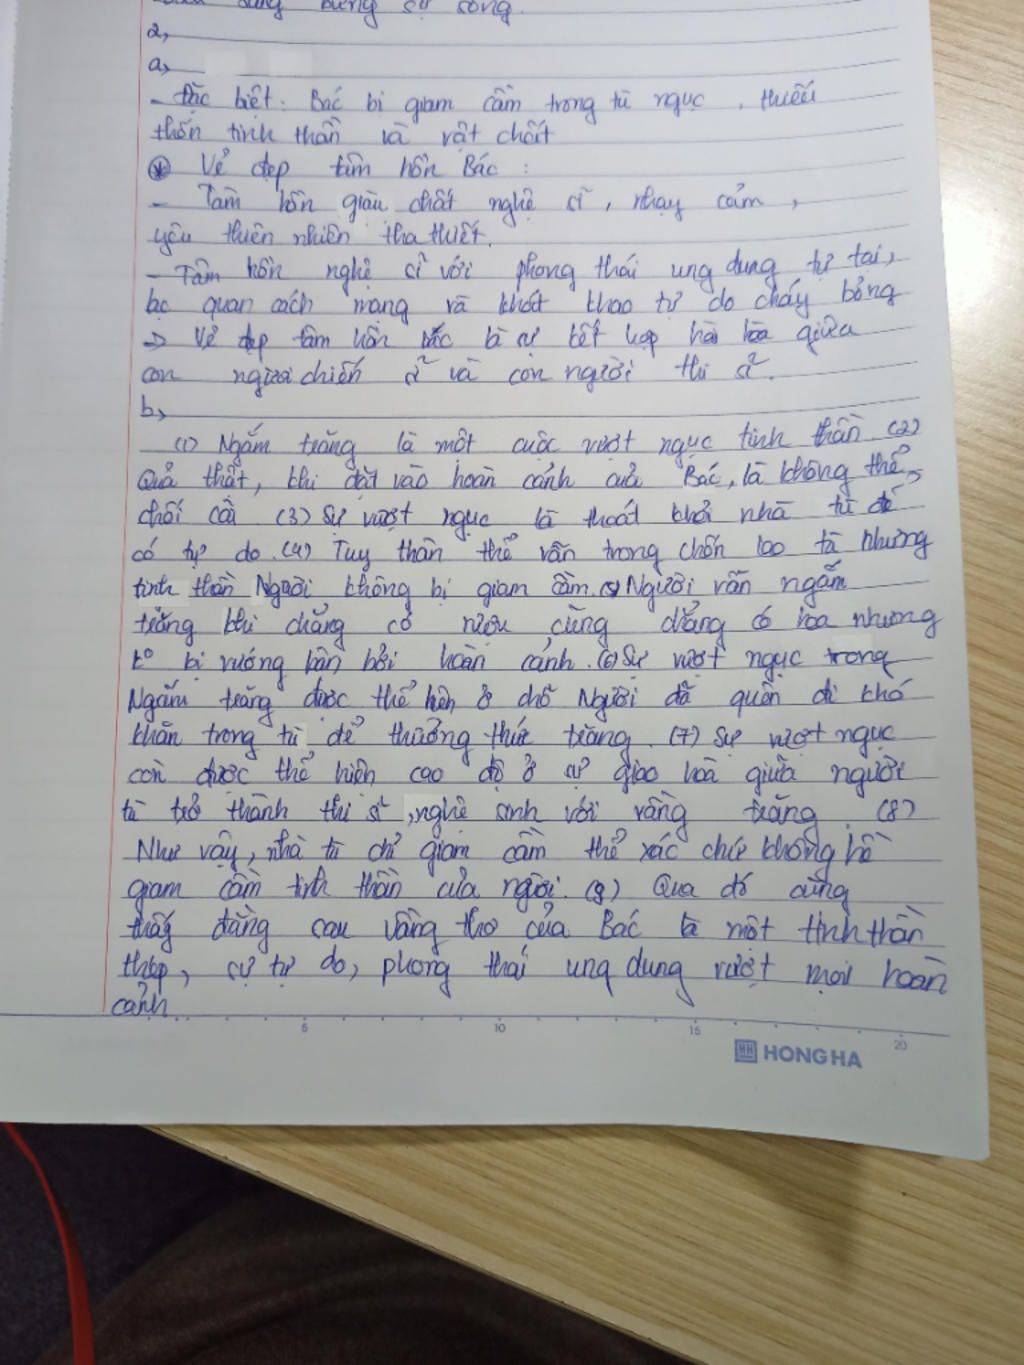 dung biếng sự sống.
2,
a,
- Đặc biệt: Bác bị giam cầm trong tù ngục, thiếu
thốn tinh thần và vật chất
* Vẻ đẹp tâm hồn Bác:
- Tâm hồn giàu chất nghệ sĩ, nhạy cảm,
yêu thiên nhiên tha thiết.
- Tâm hồn nghệ sĩ với phong thái ung dung tự tại,
lạc quan cách mạng và khát khao tự do cháy bỏng
-> Vẻ đẹp tâm hồn Bác là sự kết hợp hài hòa giữa
con người chiến sĩ và con người thi sĩ.
b,
(1) Ngắm trăng là một cuộc vượt ngục tinh thần (2)
Quả thật, khi đặt vào hoàn cảnh của Bác, là không thể
chối cãi (3) Sự vượt ngục là thoát khỏi nhà tù để
có tự do. (4) Tuy thân thể vẫn trong chốn lao tù nhưng
tinh thần Người không bị giam cầm. (5) Người vẫn ngắm
trăng khi chẳng có rượu cũng chẳng có hoa nhưng
ko bị vướng bận bởi hoàn cảnh. (6) Sự vượt ngục trong
Ngắm trăng được thể hiện ở chỗ Người đã quên đi khó
khăn trong tù để thưởng thức trăng. (7) Sự vượt ngục
còn được thể hiện cao độ ở sự giao hoà giữa người
tù trở thành thi sĩ, nghệ sinh với vầng trăng. (8)
Như vậy, nhà tù chỉ giam cầm thể xác chứ không hề
giam cầm tinh thần của người. (9) Qua đó cũng
thấy đằng sau vầng thơ của Bác là một tinh thần
thép, sự tự do, phong thái ung dung vượt mọi hoàn
cảnh
5 10 15 20
HH HONG HA